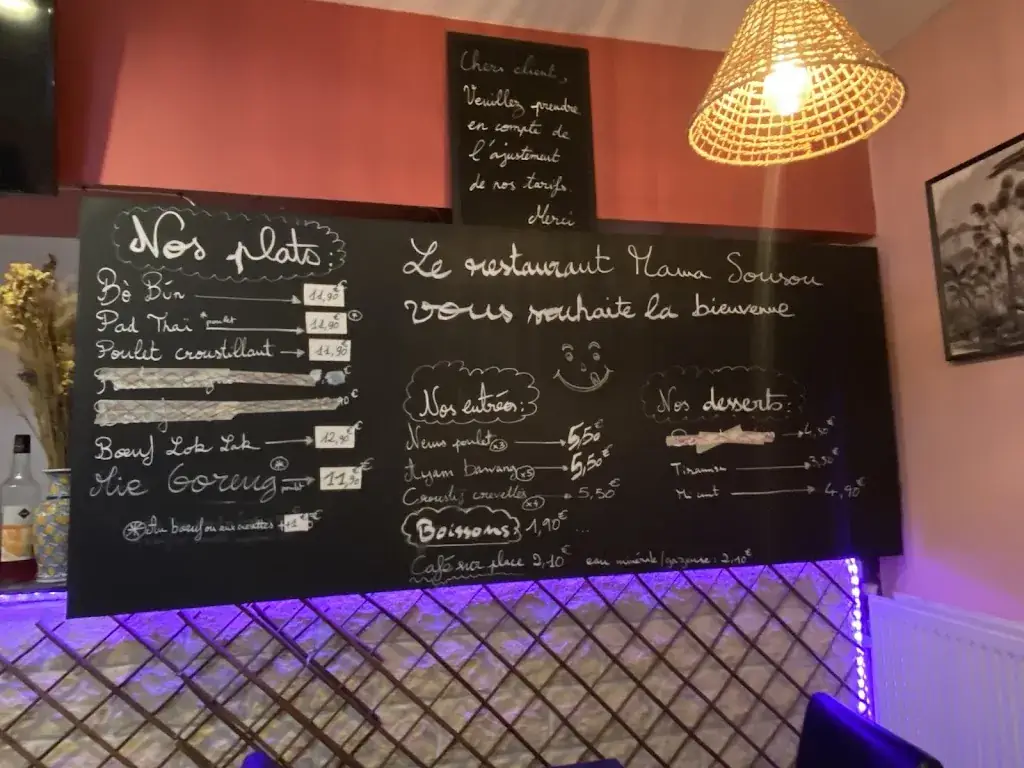 Chers client,
Veuillez prendre
en compte de
l'ajustement
de nos tarifs.
Merci
Nos plats:
Bò Bún 11,90€
Pad Thaï *poulet 11,90€
Poulet croustillant 11,90€
Bœuf Lok Lak 12,90€
Mie Goreng poulet 11,90€
Au bœuf ou aux crevettes +1€
Le restaurant Mama Sousou
vous souhaite la bienvenue
Nos entrées:
Nems poulet x3 5,50€
Ayam bawang x5 5,50€
Crousti, crevettes x4 5,50€
Boissons: 1,90€ ...
Café sur place 2,10€ eau minérale/gazeuse: 2,10€
Nos desserts:
4,50€
Tiramisu 3,50€
4,90€